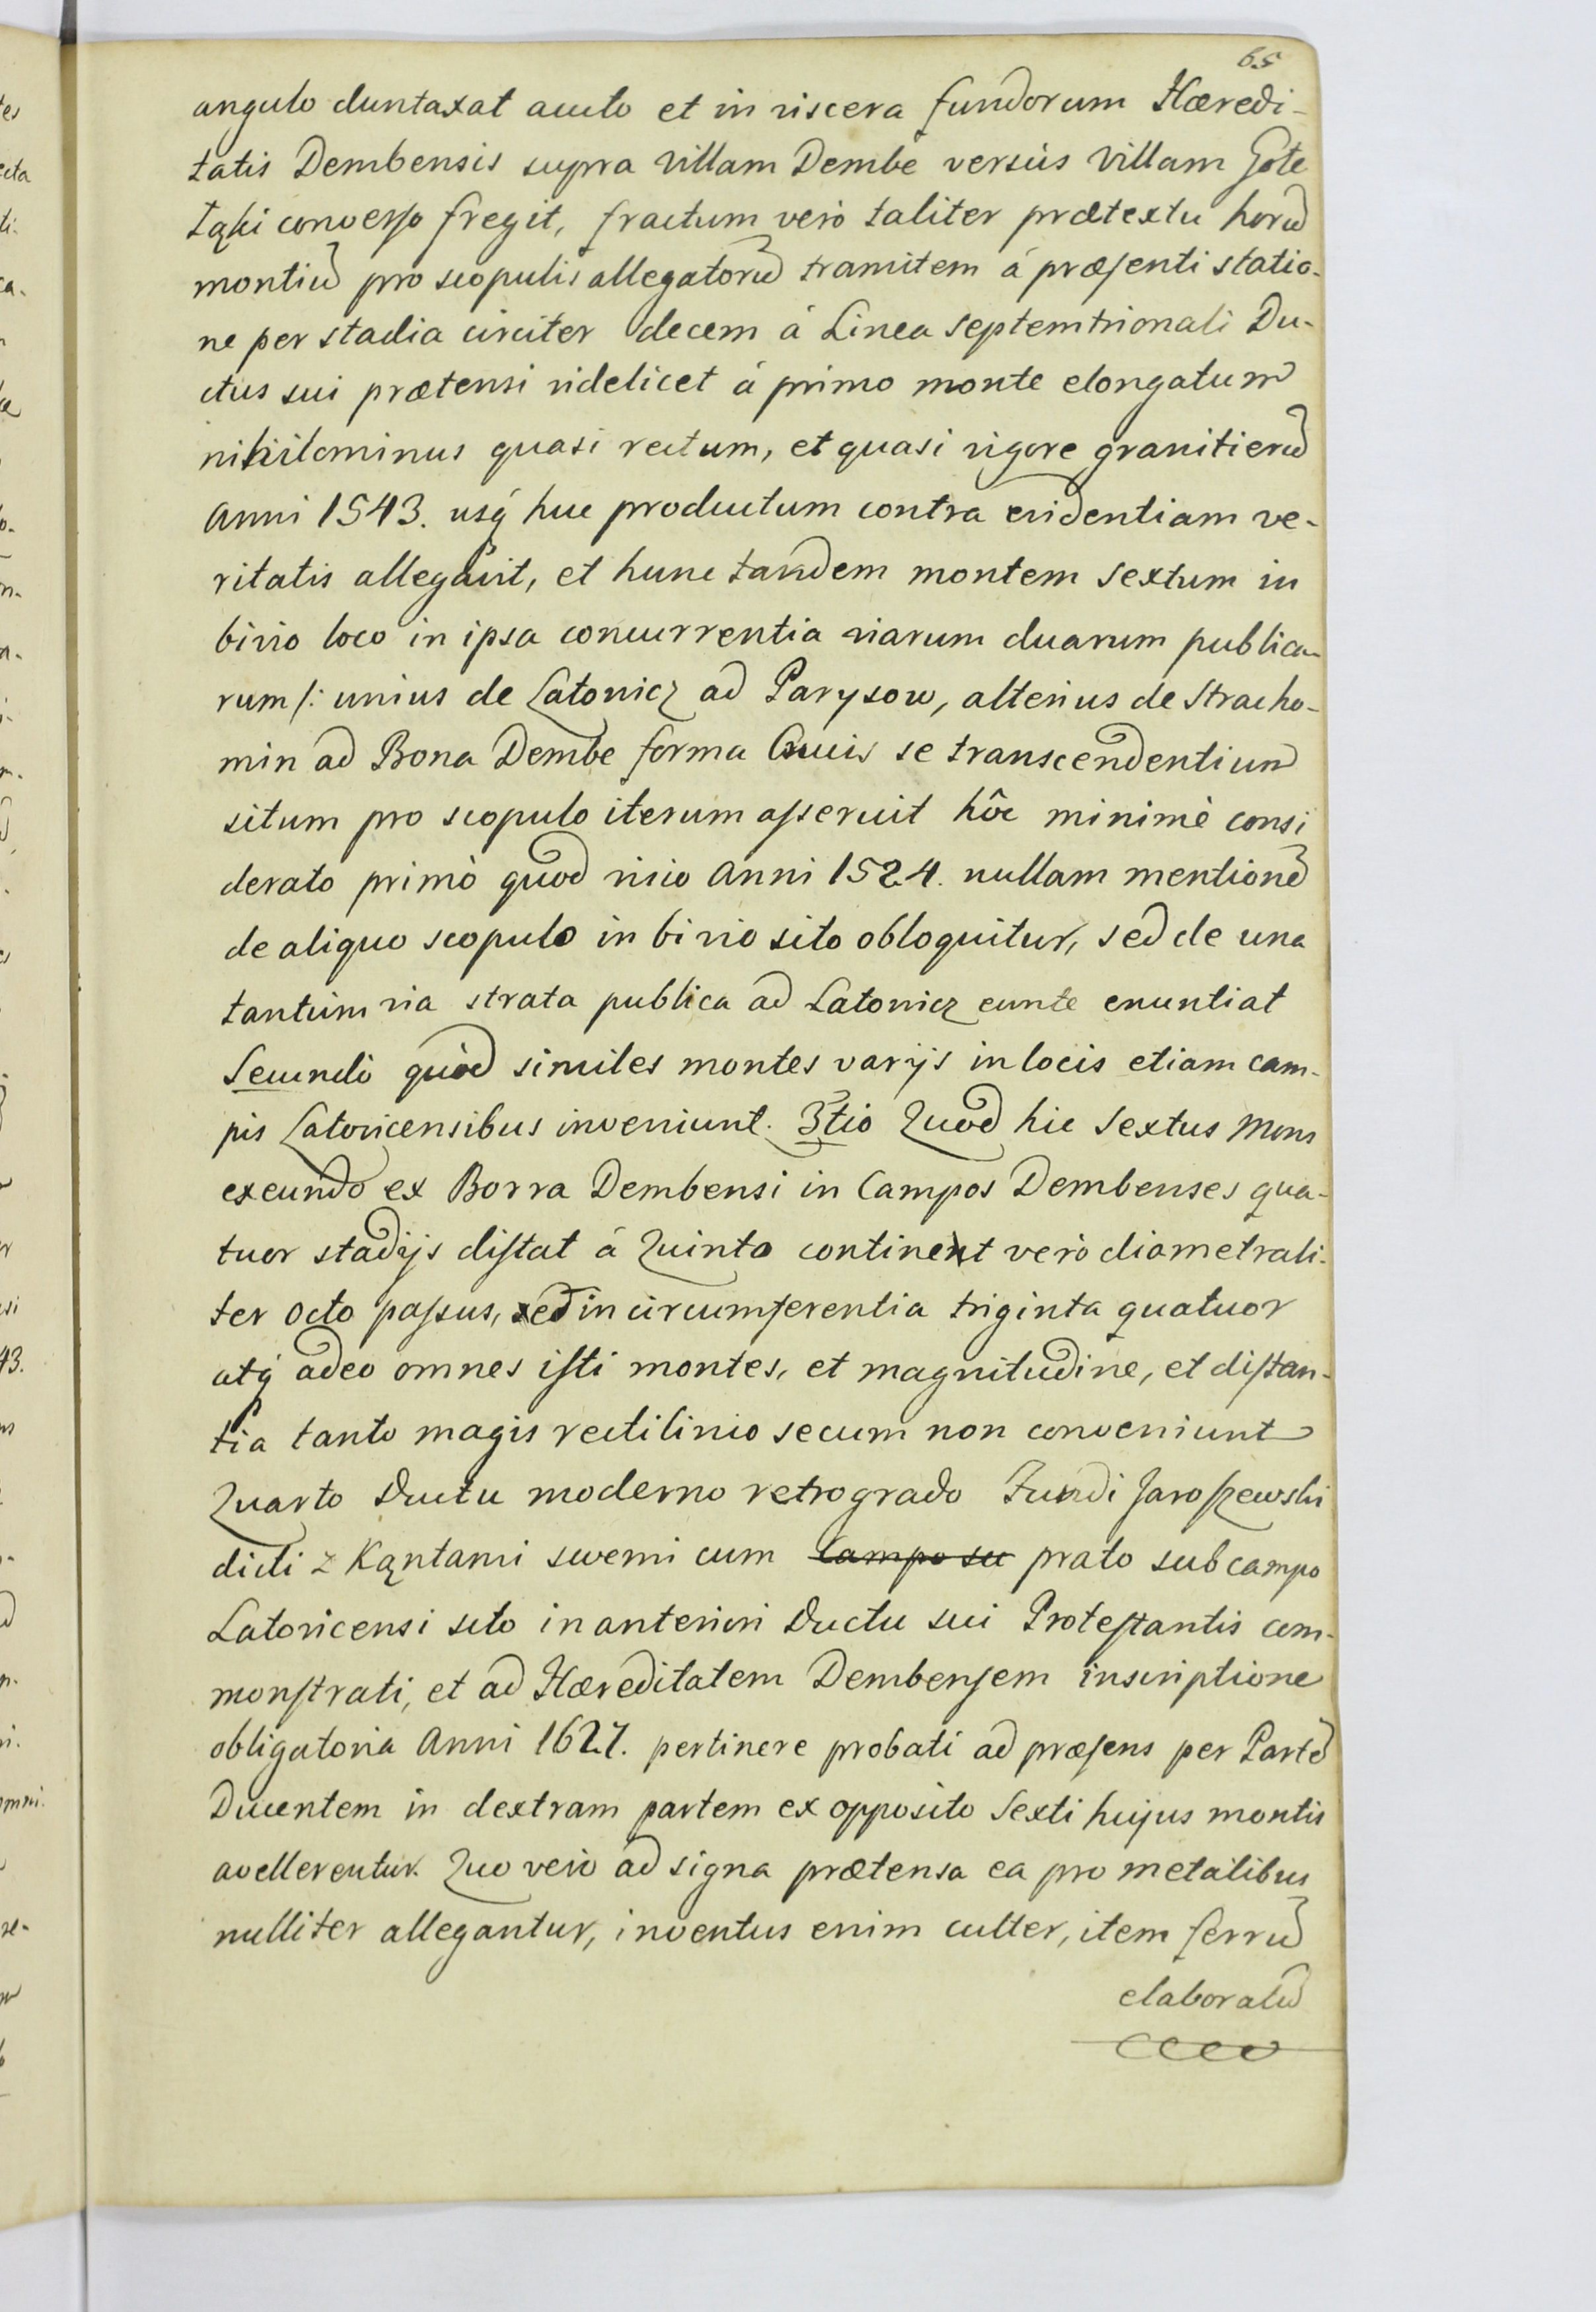 65
angulo duntaxat acuto et in viscera fundorum Hæredi-
tatis Dembensis supra Villam Dembe versùs Villam Gołe
łąki converso fregit, fractum verò taliter prætextu horũ
montiũ pro scopulis allegatorũ tramitem á præsenti statio-
ne per stadia circiter decem á Linea septemtrionali Du-
ctus sui prætensi videlicet á primo monte elongatum
nihilominus quasi rectum, et quasi vigore granitierũ
Anni 1543. usq́ huc productum contra evidentiam ve-
ritatis allegavit, et hunc tandem montem sextum in
bivio loco in ipsa concurrentia viarum duarum publica-
rum /: unius de Latowicz ad Parysow, alterius de Stracho-
min ad Bona Dembe forma Crucis se transcendentium
situm pro scopulo iterum asseruit hôc minimè consi
derato primò quod visio Anni 1524. nullam mentionẽ
de aliquo scopulo in bivio sito obloquitur, sed de una
tantùm via strata publica ad Latowicz eunte enuntiat
Secundò quòd similes montes varijs in locis etiam cam-
pis Latovicensibus inveniunt. 3tio Quod hic Sextus Mons
exeundo ex Borra Dembensi in Campos Dembenses qua-
tuor stadijs distat á Quinto continent verò diametrali-
ter octo passus, sed in circumferentia triginta quatuor
atq́ adeo omnes isti montes, et magnitudine, et distan-
tia tanto magis rectilinio secum non conveniunt
Quarto Ductu moderno retrogrado Fundi Jaroszewski
dicti z Kąntami swemi cum Campo su prato sub campo
Latovicensi sito in anteriori Ductu sui Protestantis com-
monstrati, et ad Hæreditatem Dembensem inscriptione
obligatoria Anni 1627. pertinere probati ad præsens per Partẽ
Ducentem in dextram partem ex opposito Sexti hujus montis
avellerentur. Quo verò ad signa prætensa ea pro metalibus
nulliter allegantur, inventus enim culter, item ferrũ
elaboratũ